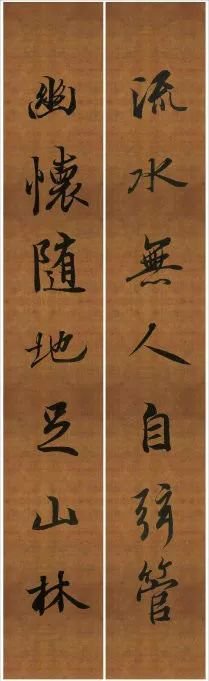 流水無人自弦管
幽懷随地足山林